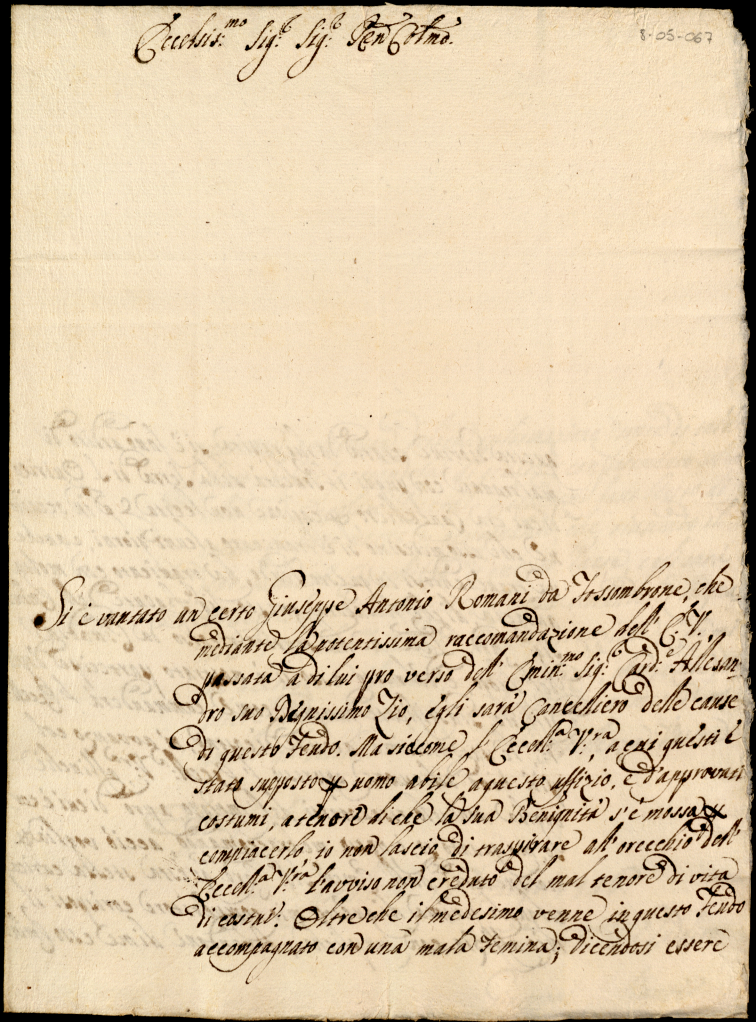 Eccelsis:mo Sig:r Sig:r Pen Colmo.
8-05-067
Si è vantato un certo Giuseppe Antonio Romani da Fossombrone, che
mediante la potentissima raccomandazione dell' E. V.
passata à di lui pro verso dell' Emin:mo Sig:r Card:e Allesan-
dro suo Degnissimo Zio, egli sarà Cancelliero delle cause
di questo Feudo. Ma siccome l' Eccell:a V:ra, a cui questi è
stato supposto p uomo abile a questo uffizio, e d'approvati
costumi, a tenore di che la sua Benignità s'è mossa p
compiacerlo, io non lascio di traspirare all' orecchio dell'
Eccell:a V:ra l'avviso non creduto del mal tenore di vita
di costui. Oltre che il medesimo venne in questo Feudo
accompagnato con una mala femina; dicendosi essere